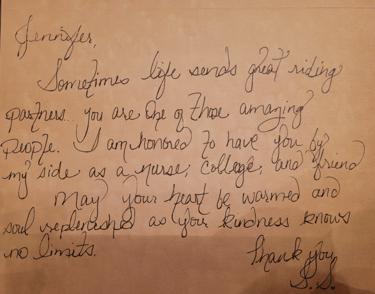 Jennifer,
Sometimes life sends great riding
partners. You are one of those amazing
people. I am honored to have you by
my side as a nurse, college, and friend
May your heart be warmed and
soul replenished as your kindness knows
no limits.
Thank you
S.S.